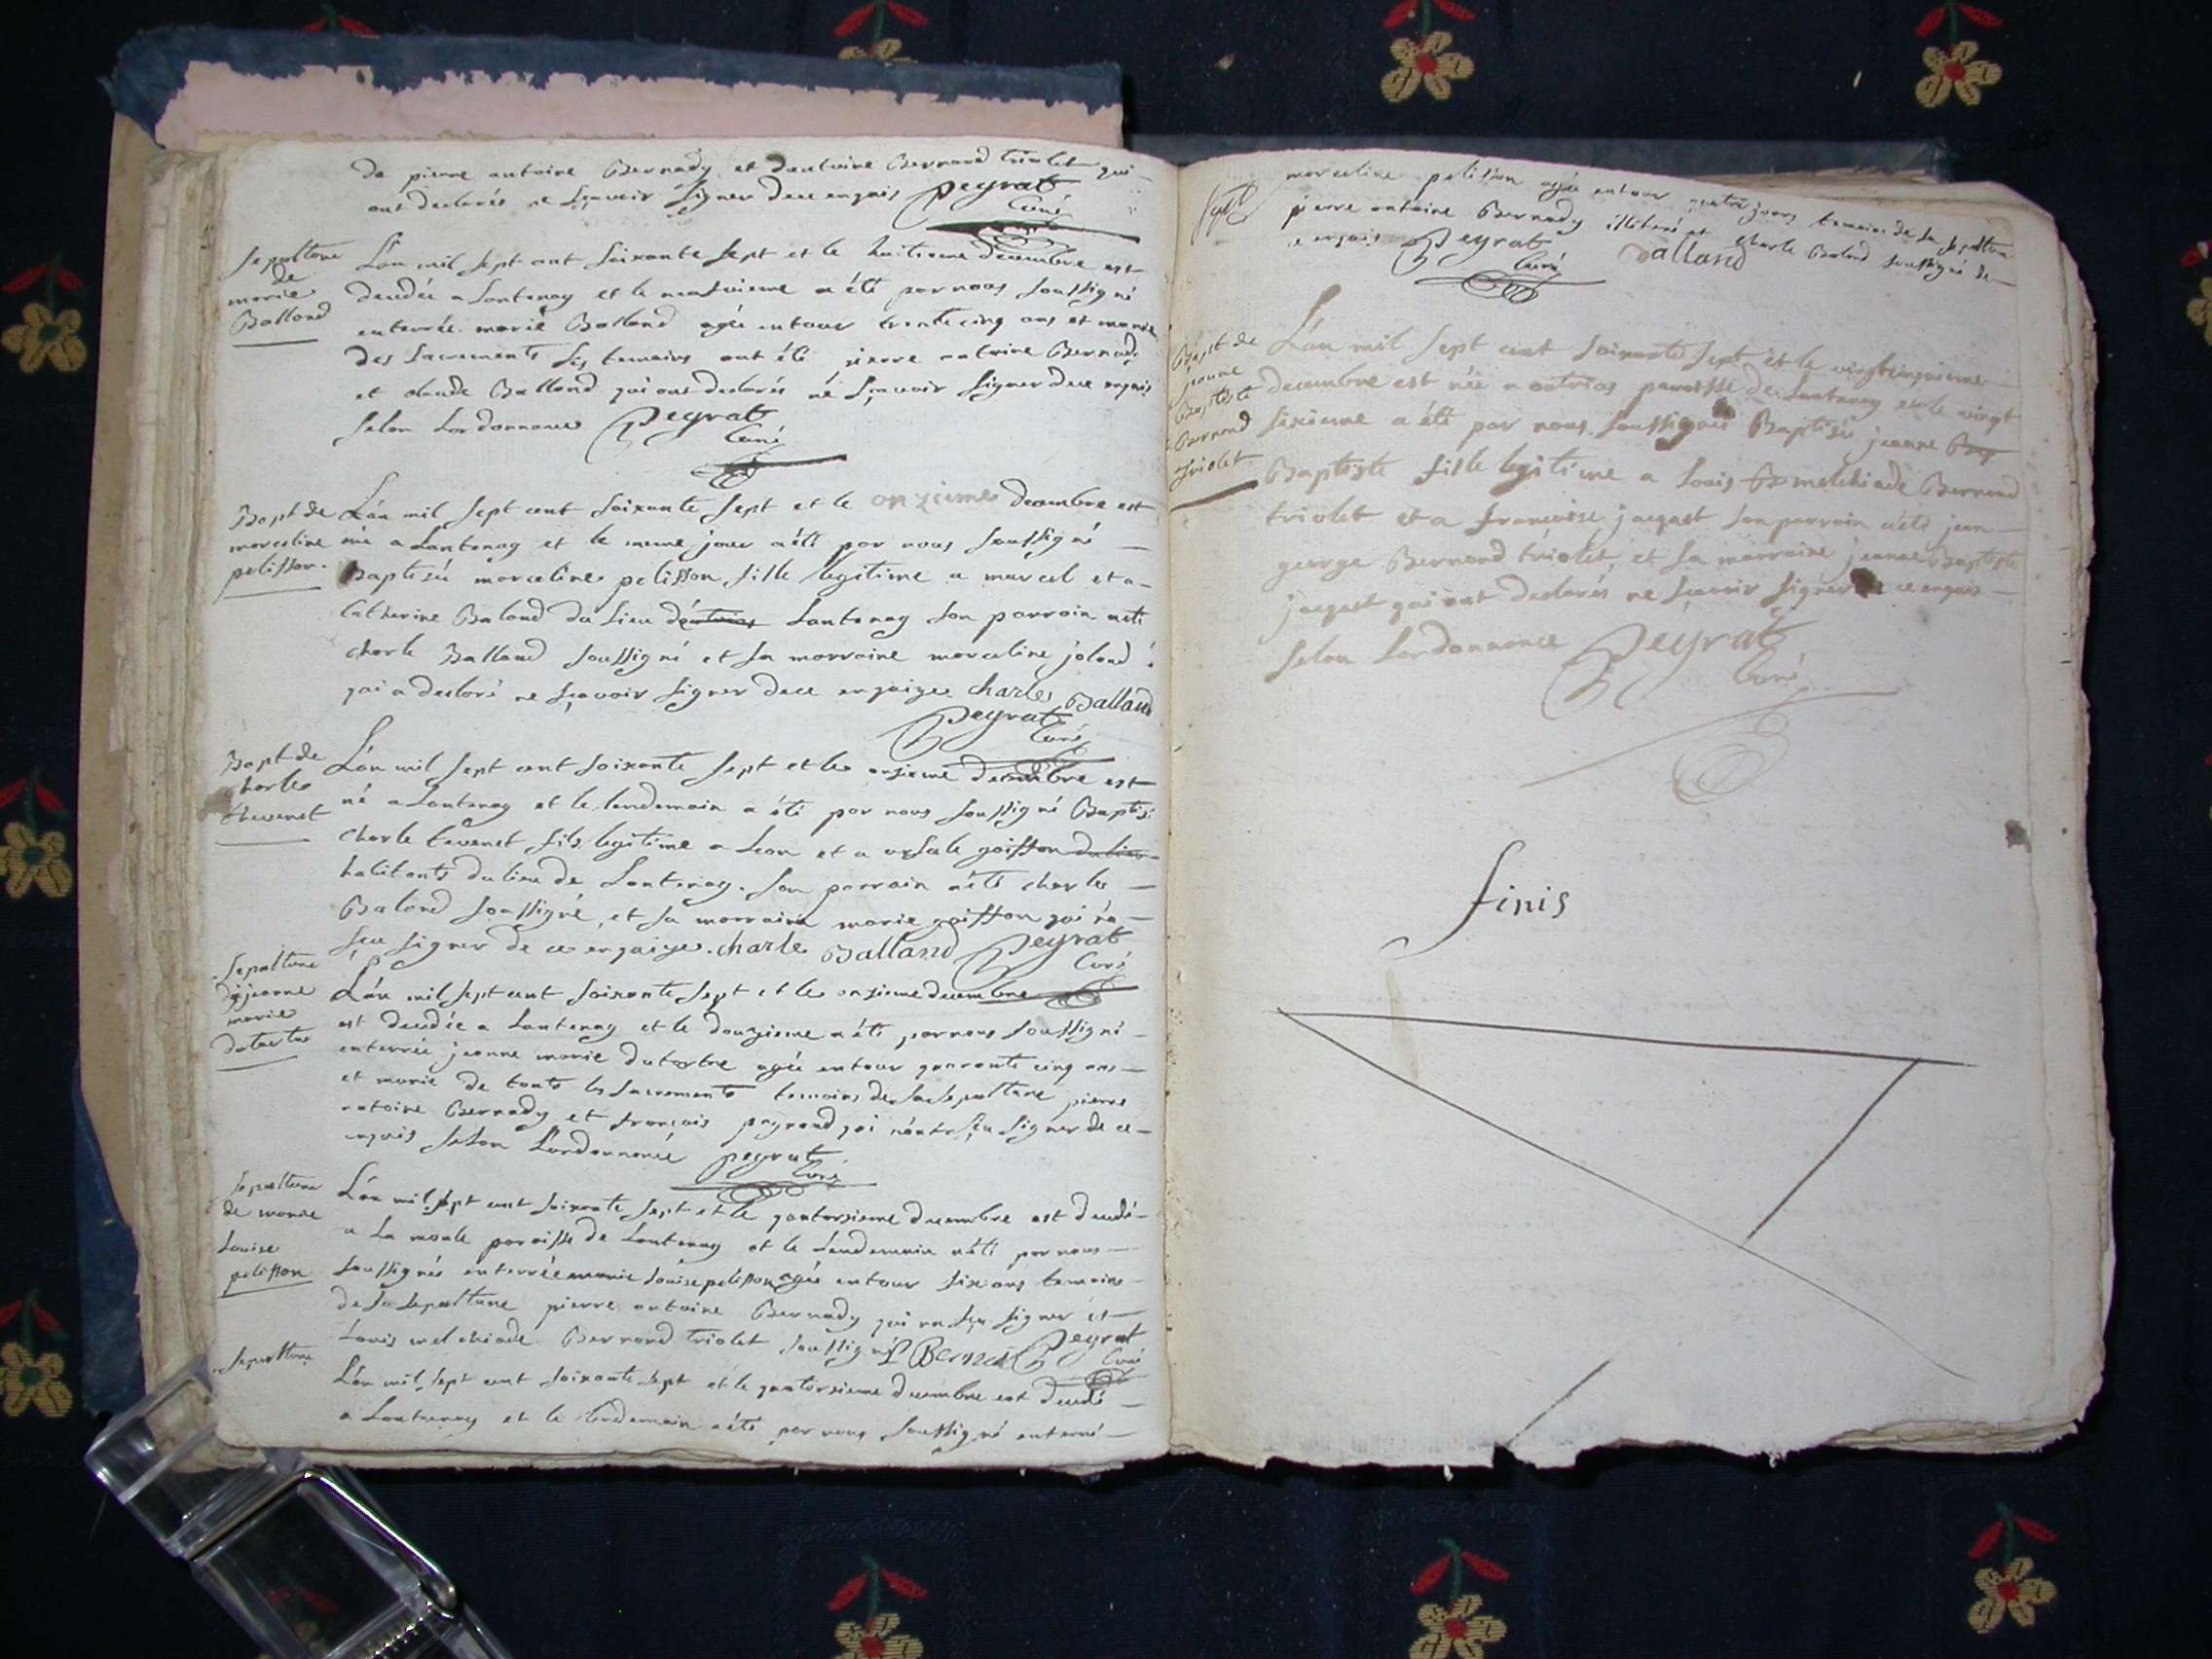 de pierre antoine Bernady et dantoine Bernard triolet qui
ont declarés ne sçavoir signer dece enquis Peyrat
Curé
Sepulture
de
marie
Balland
L'an mil sept cent soixante sept et le huitieme decembre est
decedée a Lantenay et le neufvieme a été par nous soussigné
enterrée marie Balland agée entour trente cinq ans et munie
des sacrements ses temoins ont été pierre antoine Bernady
et claude Balland qui ont declarés ne sçavoir signer dece enquis
selon Lordonnance Peyrat
Curé
Bapt de
marceline
pelisson
L'an mil sept cent soixante sept et le onzieme decembre est
née a Lantenay et le meme jour a été par nous soussigné
Baptisée marceline pelisson fille legitime a marcel et a
Catherine Baland du lieu Lantenay son parrain a été
charle Balland soussigné et sa marraine marceline joland
qui a declaré ne sçavoir signer dece enquise charles Balland
Peyrat
Curé
Bapt de
charles
thevenet
L'an mil sept cent soixante sept et le onzieme decembre est
né a Lantenay et le lendemain a été par nous soussigné Baptisé
charle tevenet fils legitime a Leon et a ursule goiffon du lieu
habitants du lieu de Lantenay. son parrain a été charles
Baland soussigné, et sa marraine marie goiffon qui n'a
sçu signer de ce enquise. charle Balland Peyrat
Curé
Sepulture
de jeanne
marie
dutartre
L'an mil sept cent soixante sept et le onzieme decembre
est decedée a Lantenay et le douzieme a été par nous soussigné
enterrée jeanne marie dutartre agée entour quarante cinq ans
et munie de touts les sacrements temoins de sa sepulture pierre
antoine Bernady et françois pegrand qui n'ont sçu signer de ce
enquis selon Lordonnance peyrat
Curé
Sepulture
de marie
Louise
pelisson
L'an mil sept cent soixante sept et le quatorzieme decembre est decedé
a La paroisse de Lantenay et le lendemain a été par nous
soussignés enterrée marie Louise pelisson agée entour six ans temoins
de sa sepulture pierre antoine Bernady qui na sçu signer et
Louis melchiade Bernard triolet soussigné Peyrat
Curé
Sepulture
L'an mil sept cent soixante sept et le quatorzieme decembre est decedé
a Lantenay et le lendemain a été par nous soussigné enterré
marceline pelisson agée entour quatre jours temoins de sa sepulture
pierre antoine Bernady illiteré et charle Baland soussigné de
ce enquis Peyrat Balland
Curé
Bapt de
jeanne
Baptiste
Bernard
triolet
L'an mil sept cent soixante sept et le vingtcinquieme
decembre est née a outrias paroisse de Lantenay et le vingt
sixieme a été par nous soussignés Baptisée jeanne Bap
Baptiste fille legitime a Louis melchiade Bernard
triolet et a francoise jacquet son parrain a été jean
george Bernard triolet, et sa marraine jeanne Baptiste
jacquet qui ont declarés ne sçavoir signer ce enquis
selon Lordonnance Peyrat
Curé
finis